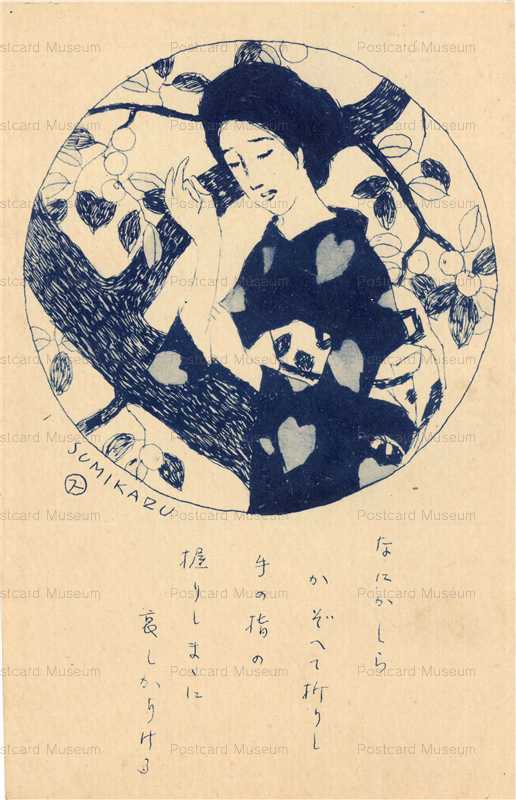 SUMIKAZU
ス
なにかしら
かぞへて折りし
手の指の
握りしまゝに
哀しかりける
Postcard Museum